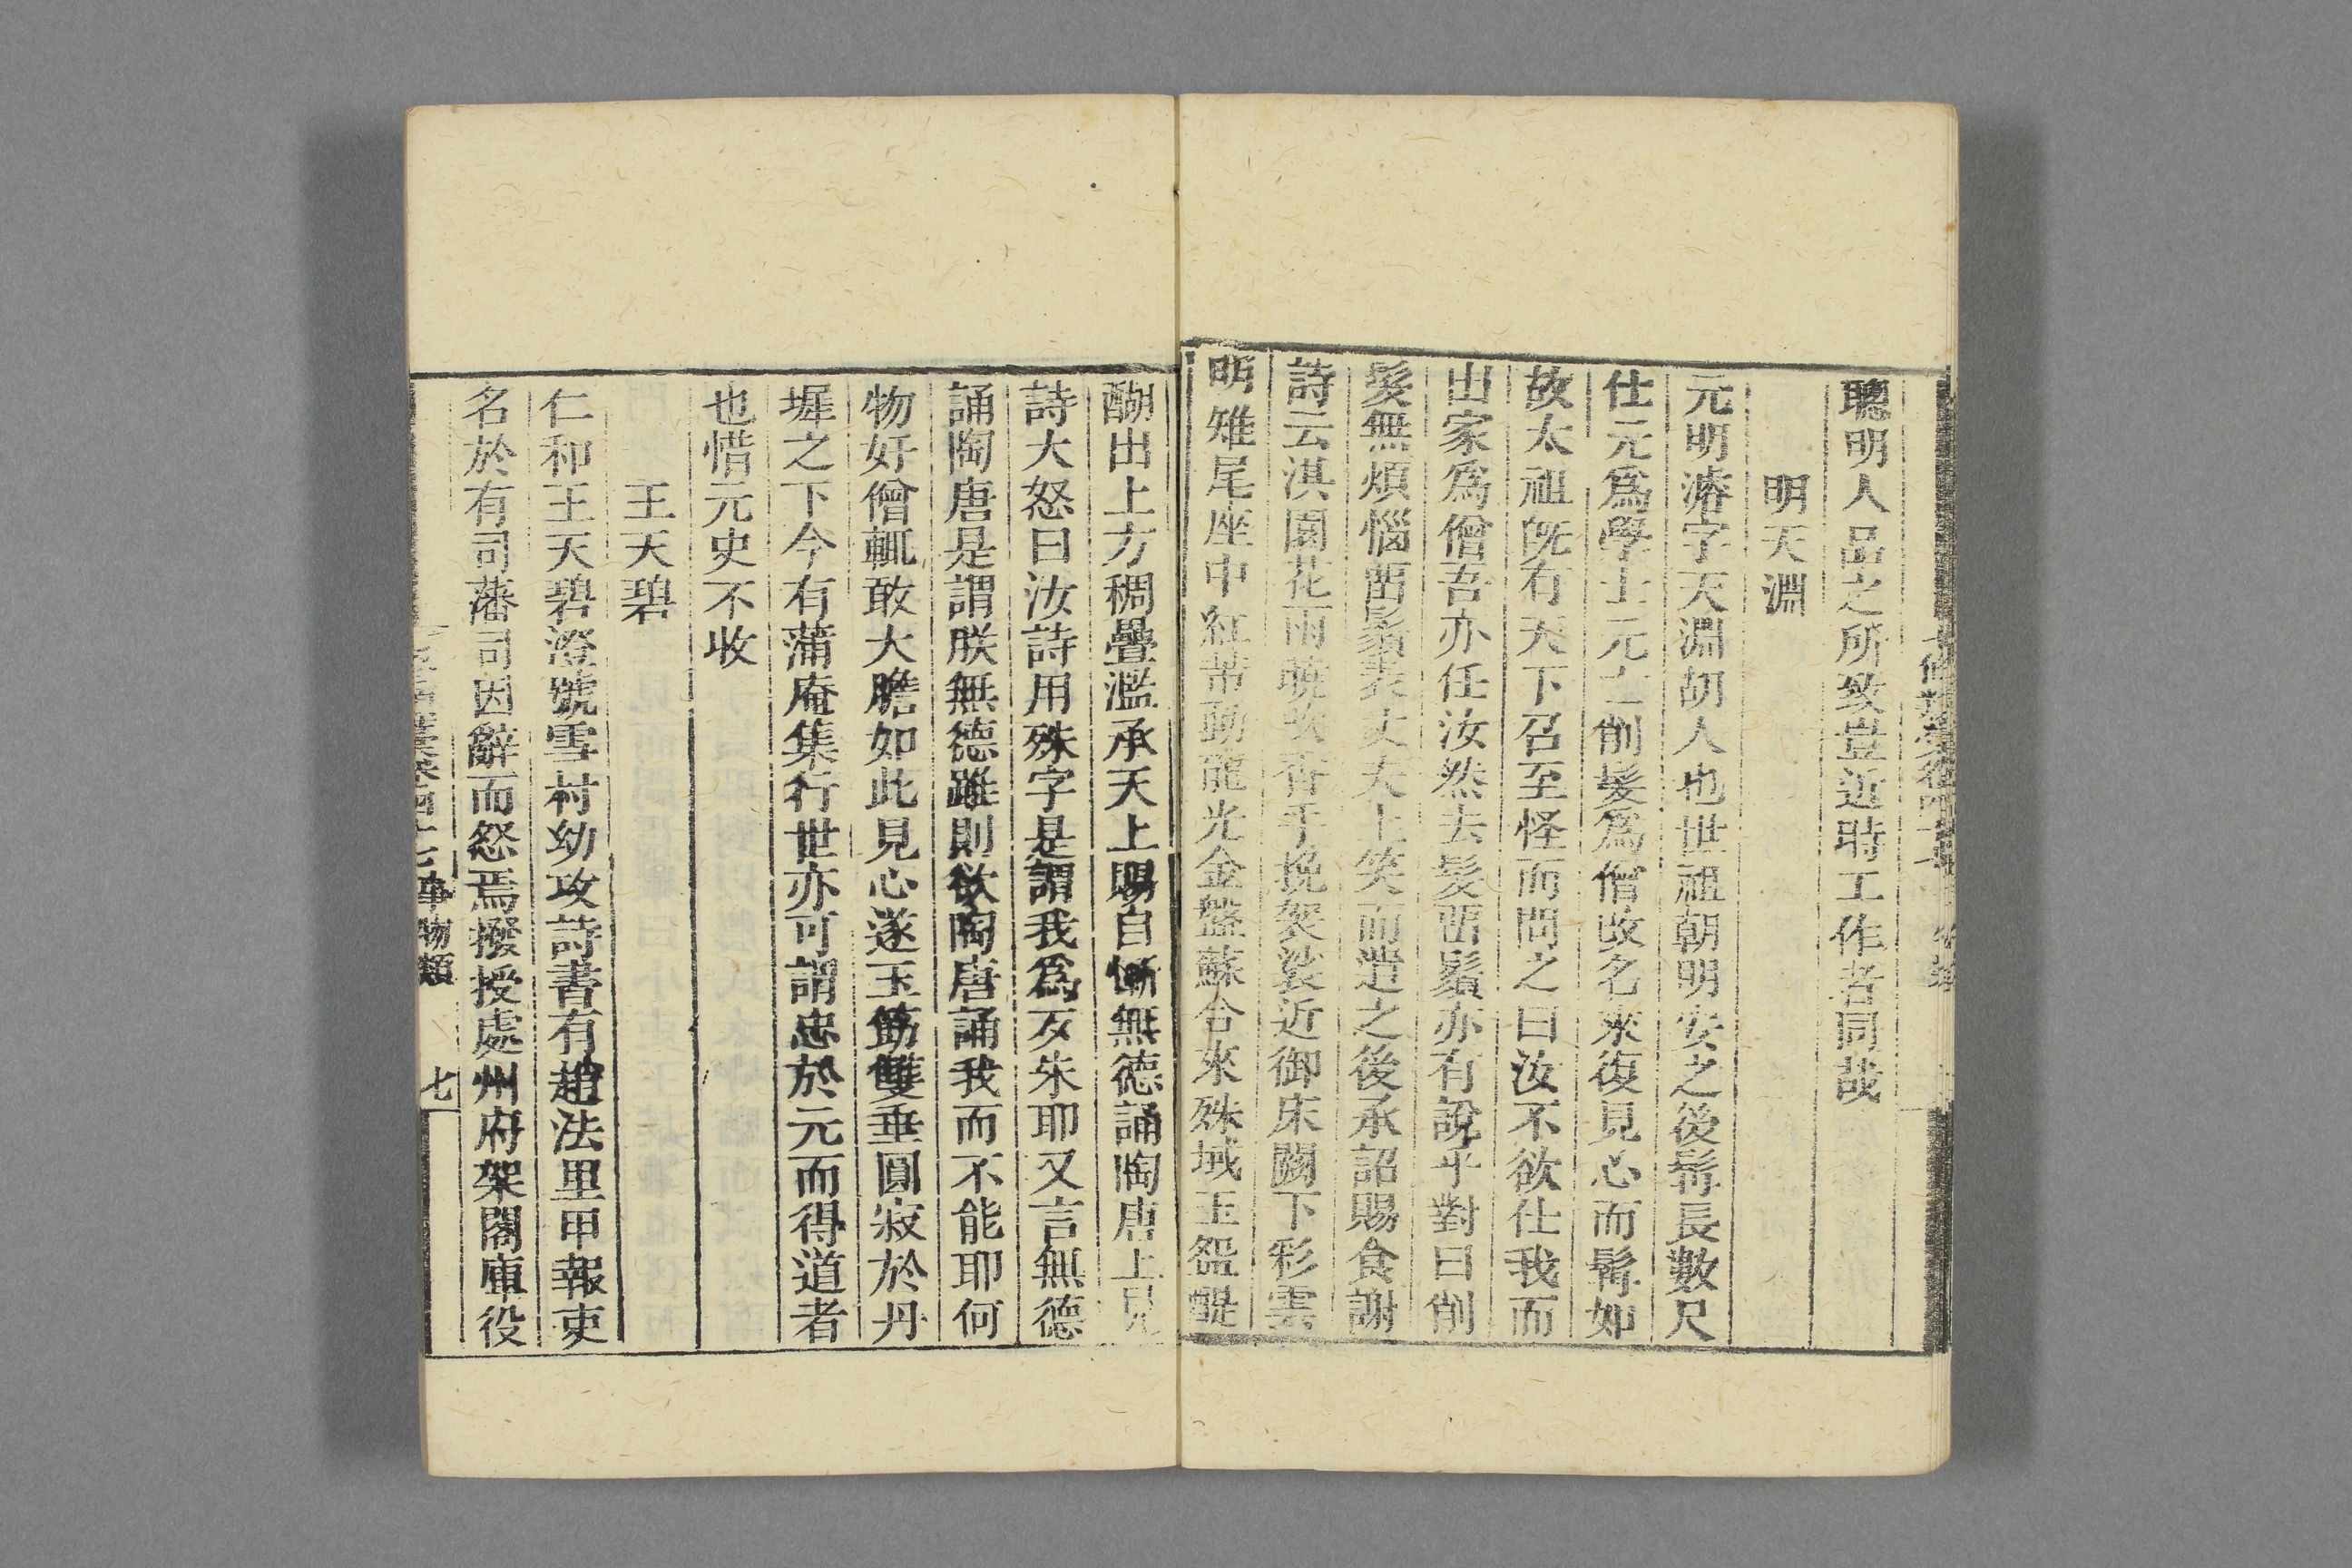 聰明人品之所致豈近時工作者同哉
明天淵
元明濬字天淵胡人也世祖朝明安之後髯長數尺
仕元爲學士元亡削髮爲僧改名來復見心而髯如
故太祖旣有天下召至怪而問之曰汝不欲仕我而
出家爲僧吾亦任汝然去髮畱鬚亦有說乎對曰削
髮無煩惱畱鬚表丈夫上笑而遣之後承詔賜食謝
詩云淇園花雨曉吹香手挽袈裟近御床闕下彩雲
明雉尾座中紅芾動龍光金盤蘇合來殊域玉盌醍
醐出上方稠疊濫承天上賜自慚無德誦陶唐上見
詩大怒曰汝詩用殊字是謂我爲歹朱耶又言無德
誦陶唐是謂朕無德雖則欲陶唐誦我而不能耶何
物奸僧輒敢大膽如此見心遂玉筯雙垂圓寂於丹
墀之下今有蒲庵集行世亦可謂忠於元而得道者
也惜元史不收
王天碧
仁和王天碧澄號雪村幼攻詩書有趙法里甲報吏
名於有司藩司因辭而怒焉撥授處州府架閣庫役
事物類
七